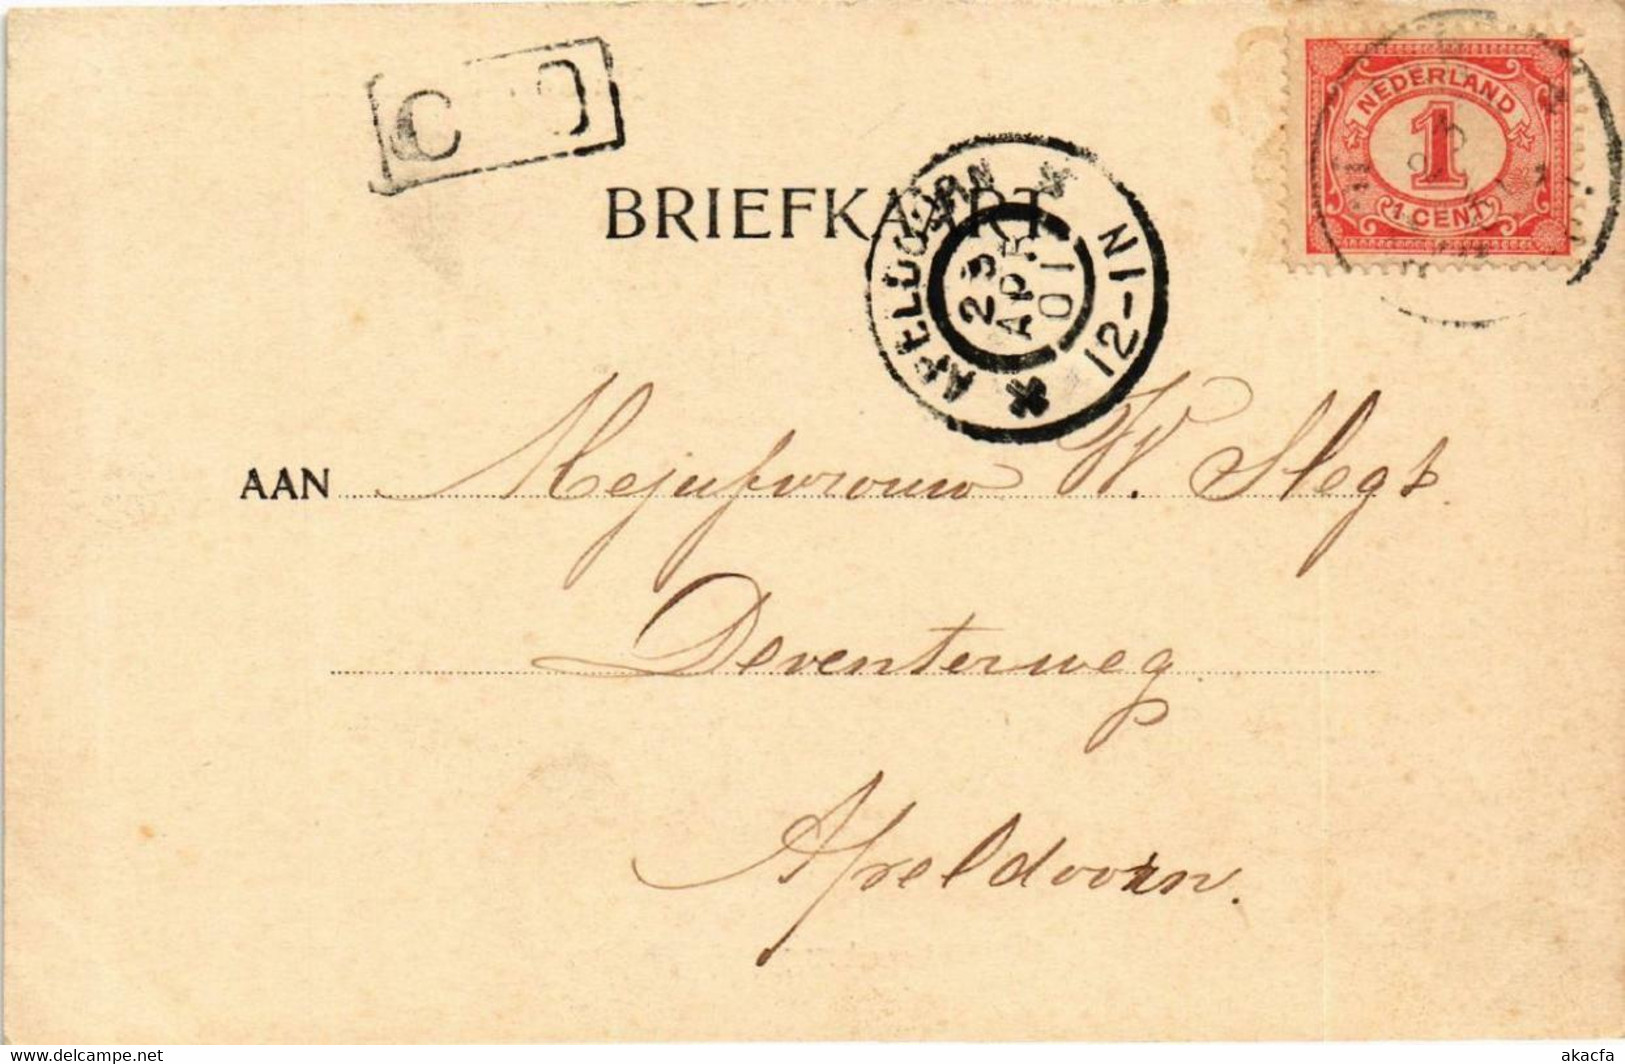 C
NEDERLAND
1
1 CENT
BRIEFKAART
APELDOORN
23
APR
01
12-1N
AAN Mejufvrouw W. Slegt
Deventerweg
Apeldoorn.
akacfa